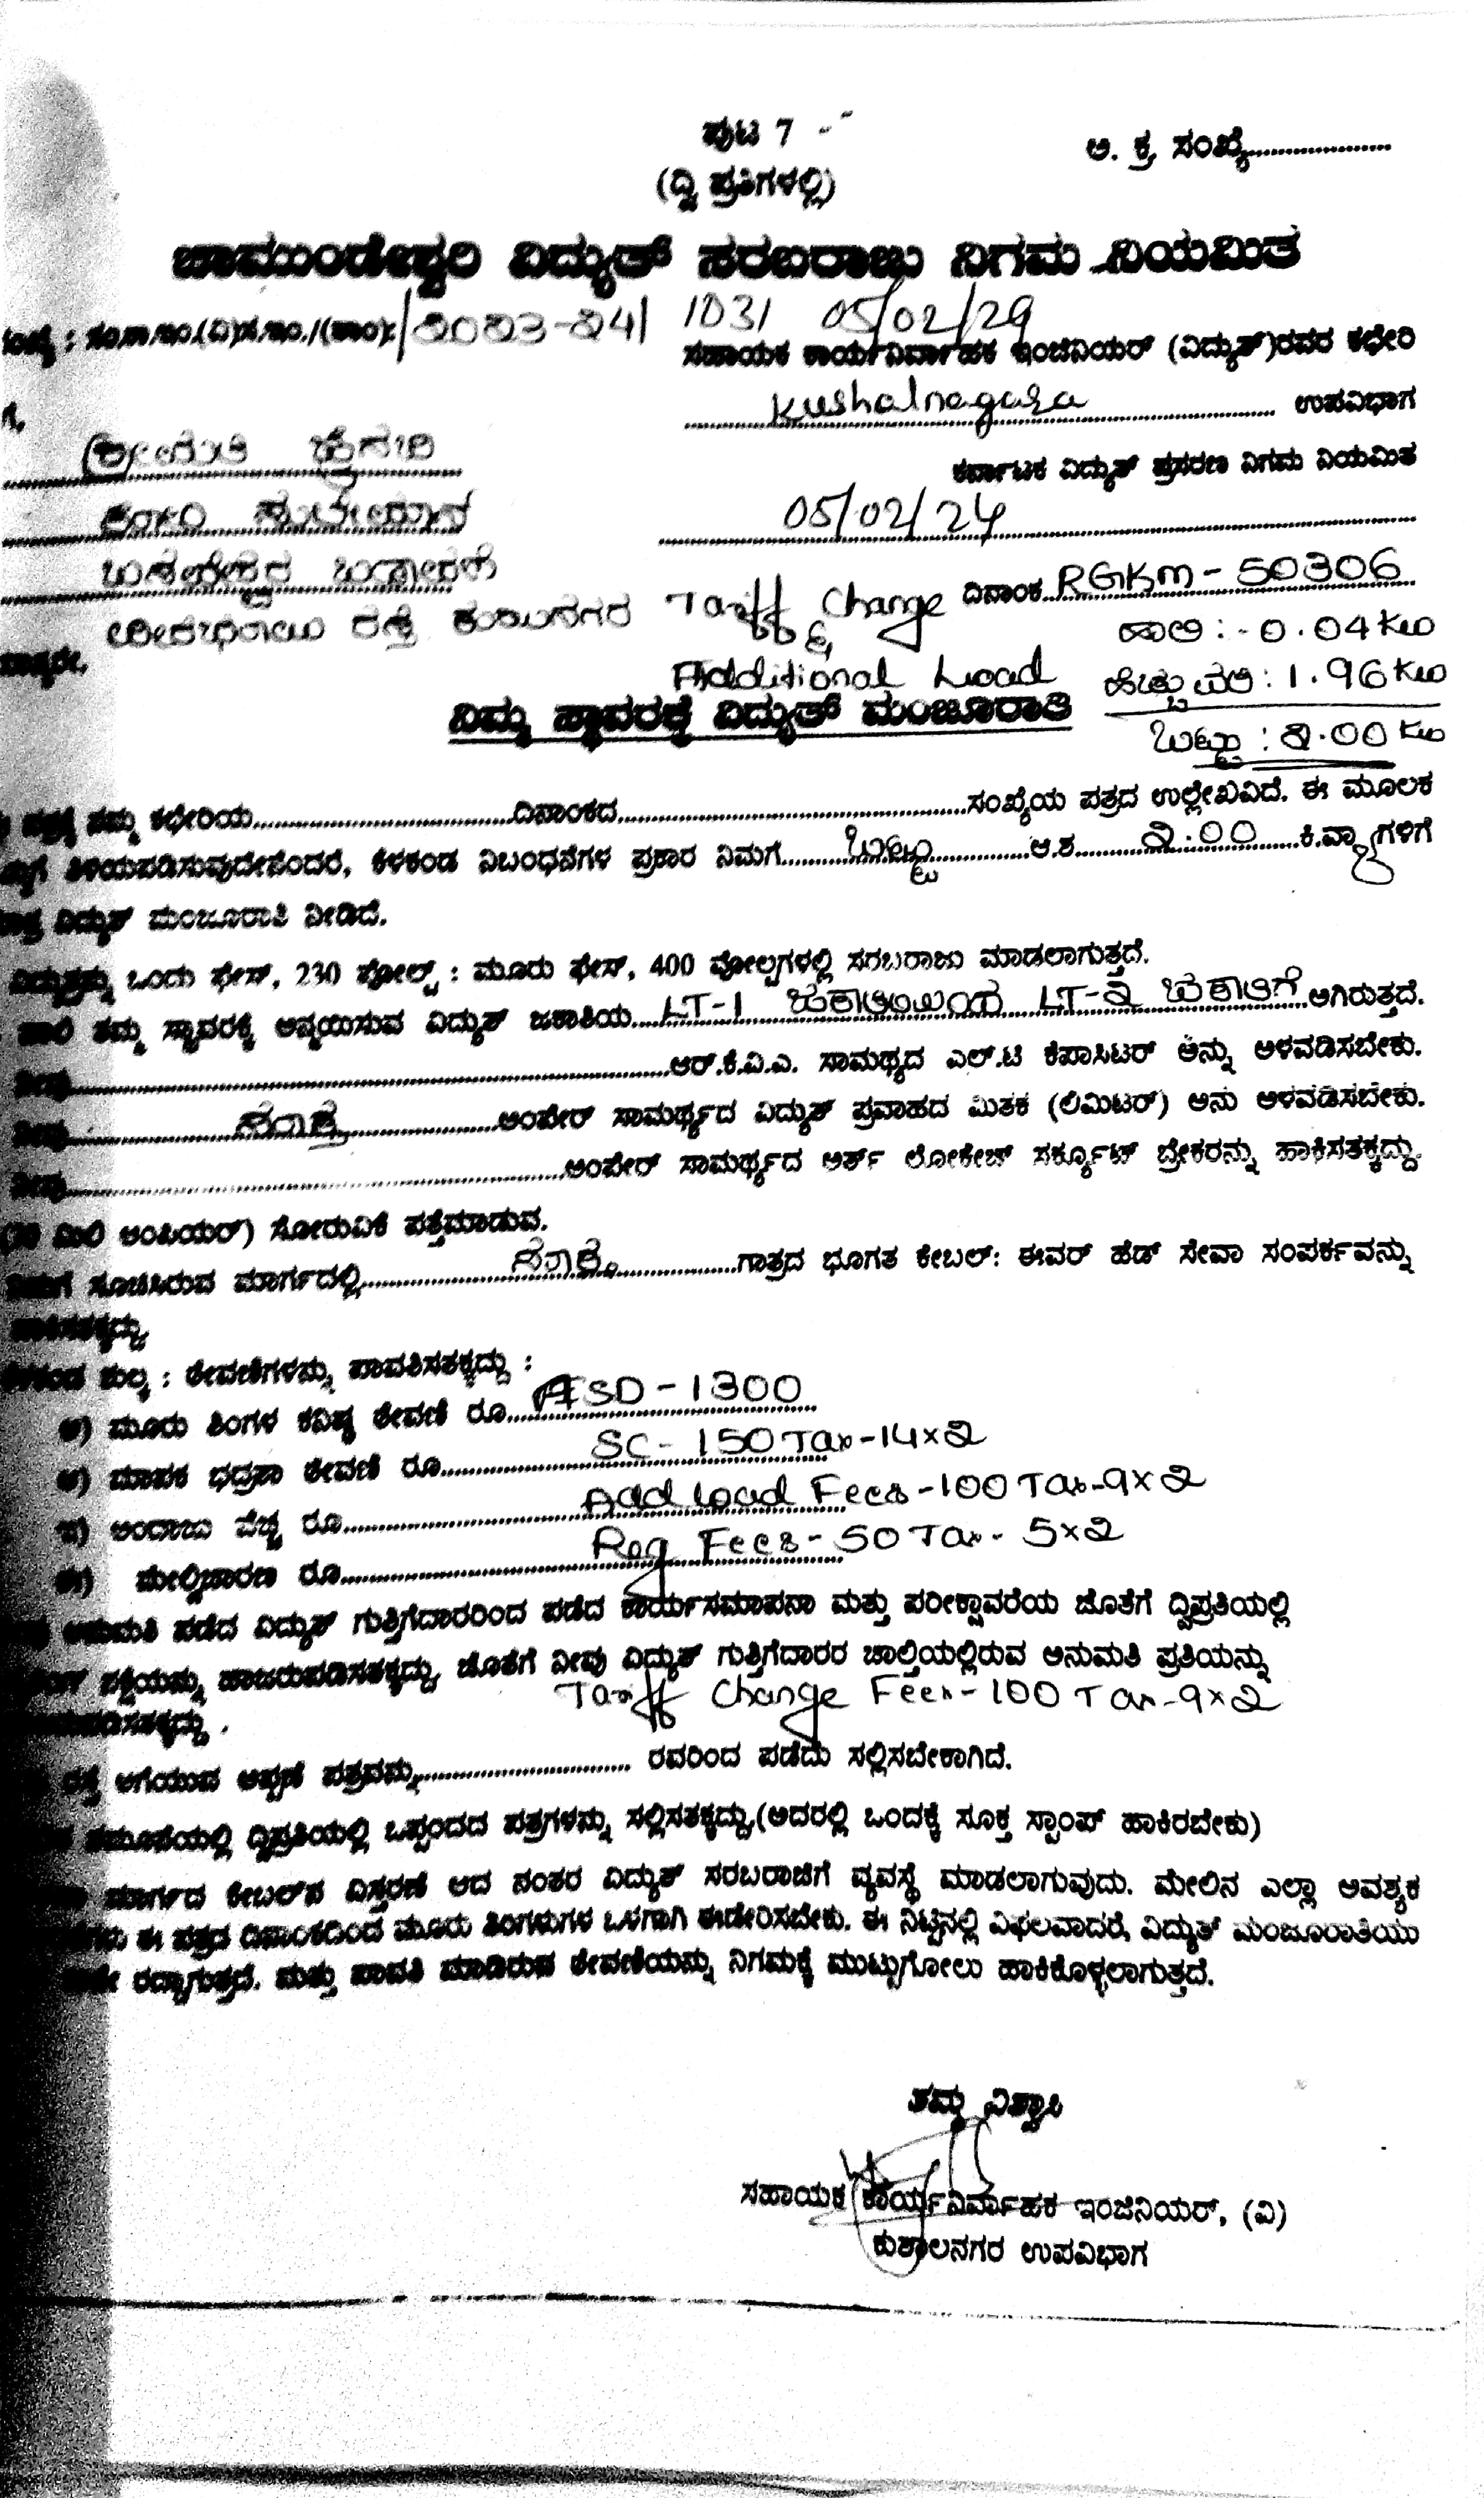 ಪುಟ 7
ಅ. ಕ್ರ. ಸಂಖ್ಯೆ....................
(ದ್ವಿ ಪ್ರತಿಗಳಲ್ಲಿ)
ಚಾಮುಂಡೇಶ್ವರಿ ವಿದ್ಯುತ್ ಸರಬರಾಜು ನಿಗಮ ನಿಯಮಿತ
2023-24/ 1031 05/02/24
ಸಹಾಯಕ ಕಾರ್ಯನಿರ್ವಾಹಕ ಇಂಜಿನಿಯರ್ (ವಿದ್ಯುತ್)ರವರ ಕಛೇರಿ
Kushalnagara ಉಪವಿಭಾಗ
ಶ್ರೀಮತಿ
ಕರ್ನಾಟಕ ವಿದ್ಯುತ್ ಪ್ರಸರಣ ನಿಗಮ ನಿಯಮಿತ
05/02/24
ಬಸವೇಶ್ವರ ಬಡಾವಣೆ
ದಿನಾಂಕ RGKM - 50306
ರಸ್ತೆ ಕುಶಾಲನಗರ Tariff Change
& ಹಾಲಿ :- 0.04 KW
Additional Load ಹೆಚ್ಚುವರಿ : 1.96 KW
ನಿಮ್ಮ ಸ್ಥಾವರಕ್ಕೆ ವಿದ್ಯುತ್ ಮಂಜೂರಾತಿ
ಒಟ್ಟು : 2.00 KW
ನಮ್ಮ ಕಛೇರಿಯ....................ದಿನಾಂಕದ....................ಸಂಖ್ಯೆಯ ಪತ್ರದ ಉಲ್ಲೇಖವಿದೆ. ಈ ಮೂಲಕ
ತಿಳಿಯಪಡಿಸುವುದೇನೆಂದರೆ, ಕೆಳಕಂಡ ನಿಬಂಧನೆಗಳ ಪ್ರಕಾರ ನಿಮಗೆ....ಒಟ್ಟು....ಅ.ಶ....2.00....ಕಿ.ವ್ಯಾ ಗಳಿಗೆ
ವಿದ್ಯುತ್ ಮಂಜೂರಾತಿ ನೀಡಿದೆ.
ವಿದ್ಯುತ್ತನ್ನು ಒಂದು ಫೇಸ್, 230 ವೋಲ್ಟ್ : ಮೂರು ಫೇಸ್, 400 ವೋಲ್ಟಗಳಲ್ಲಿ ಸರಬರಾಜು ಮಾಡಲಾಗುತ್ತದೆ.
ಹಾಲಿ ತಮ್ಮ ಸ್ಥಾವರಕ್ಕೆ ಅನ್ವಯಿಸುವ ವಿದ್ಯುತ್ ಜಕಾತಿಯ....LT-1 ಜಕಾತಿಯಿಂದ LT-2 ಜಕಾತಿಗೆ....ಆಗಿರುತ್ತದೆ.
ನೀವು....................ಆರ್.ಕೆ.ವಿ.ಎ. ಸಾಮಥ್ಯದ ಎಲ್.ಟಿ ಕೆಪಾಸಿಟರ್ ಅನ್ನು ಅಳವಡಿಸಬೇಕು.
ನೀವು....................ಅಂಪೇರ್ ಸಾಮರ್ಥ್ಯದ ವಿದ್ಯುತ್ ಪ್ರವಾಹದ ಮಿತಕ (ಲಿಮಿಟರ್) ಅನು ಅಳವಡಿಸಬೇಕು.
ನೀವು....................ಅಂಪೇರ್ ಸಾಮರ್ಥ್ಯದ ಅರ್ತ್ ಲೀಕೇಜ್ ಸರ್ಕ್ಯೂಟ್ ಬ್ರೇಕರನ್ನು ಹಾಕಿಸತಕ್ಕದ್ದು.
ಮಿಲಿ ಅಂಪಿಯರ್) ಸೋರುವಿಕೆ ಪತ್ತೆಮಾಡುವ.
ಸೂಚಿಸಿರುವ ಮಾರ್ಗದಲ್ಲಿ....................ಗಾತ್ರದ ಭೂಗತ ಕೇಬಲ್: ಈವರ್ ಹೆಡ್ ಸೇವಾ ಸಂಪರ್ಕವನ್ನು
ಶುಲ್ಕ : ಠೇವಣಿಗಳನ್ನು ಪಾವತಿಸತಕ್ಕದ್ದು :
ಅ) ಮೂರು ತಿಂಗಳ ಕನಿಷ್ಠ ಠೇವಣಿ ರೂ....ASD - 1300
ಆ) ಮಾಪಕ ಭದ್ರತಾ ಠೇವಣಿ ರೂ....SC - 150 Tax - 14×2
ಇ) ಅಂದಾಜು ವೆಚ್ಚ ರೂ....Add load Fees - 100 Tax - 9×2
ಈ) ಮೇಲ್ವಿಚಾರಣ ರೂ....Reg Fees - 50 Tax - 5×2
ಅನುಮತಿ ಪಡೆದ ವಿದ್ಯುತ್ ಗುತ್ತಿಗೆದಾರರಿಂದ ಪಡೆದ ಕಾರ್ಯಸಮಾಪನಾ ಮತ್ತು ಪರೀಕ್ಷಾವರೆಯ ಜೊತೆಗೆ ದ್ವಿಪ್ರತಿಯಲ್ಲಿ
ನಕ್ಷೆಯನ್ನು ಹಾಜರುಪಡಿಸತಕ್ಕದ್ದು. ಜೊತೆಗೆ ನೀವು ವಿದ್ಯುತ್ ಗುತ್ತಿಗೆದಾರರ ಚಾಲ್ತಿಯಲ್ಲಿರುವ ಅನುಮತಿ ಪ್ರತಿಯನ್ನು
Tariff Change Fees - 100 Tax - 9×2
ರಸ್ತೆ ಅಗೆಯುವ ಅಪ್ಪಣೆ ಪತ್ರವನ್ನು.................... ರವರಿಂದ ಪಡೆದು ಸಲ್ಲಿಸಬೇಕಾಗಿದೆ.
ನಮೂನೆಯಲ್ಲಿ ದ್ವಿಪ್ರತಿಯಲ್ಲಿ ಒಪ್ಪಂದದ ಪತ್ರಗಳನ್ನು ಸಲ್ಲಿಸತಕ್ಕದ್ದು.(ಅದರಲ್ಲಿ ಒಂದಕ್ಕೆ ಸೂಕ್ತ ಸ್ಟಾಂಪ್ ಹಾಕಿರಬೇಕು)
ಮಾರ್ಗದ ಕೇಬಲ್‌ನ ವಿಸ್ತರಣೆ ಆದ ನಂತರ ವಿದ್ಯುತ್ ಸರಬರಾಜಿಗೆ ವ್ಯವಸ್ಥೆ ಮಾಡಲಾಗುವುದು. ಮೇಲಿನ ಎಲ್ಲಾ ಅವಶ್ಯಕ
ಈ ಪತ್ರದ ದಿನಾಂಕದಿಂದ ಮೂರು ತಿಂಗಳುಗಳ ಒಳಗಾಗಿ ಈಡೇರಿಸಬೇಕು. ಈ ನಿಟ್ಟಿನಲ್ಲಿ ವಿಫಲವಾದರೆ, ವಿದ್ಯುತ್ ಮಂಜೂರಾತಿಯು
ರದ್ದಾಗುತ್ತದೆ. ಮತ್ತು ಪಾವತಿ ಮಾಡಿರುವ ಠೇವಣಿಯನ್ನು ನಿಗಮಕ್ಕೆ ಮುಟ್ಟುಗೋಲು ಹಾಕಿಕೊಳ್ಳಲಾಗುತ್ತದೆ.
ತಮ್ಮ ವಿಶ್ವಾಸಿ
ಸಹಾಯಕ ಕಾರ್ಯನಿರ್ವಾಹಕ ಇಂಜಿನಿಯರ್, (ವಿ)
ಕುಶಾಲನಗರ ಉಪವಿಭಾಗ